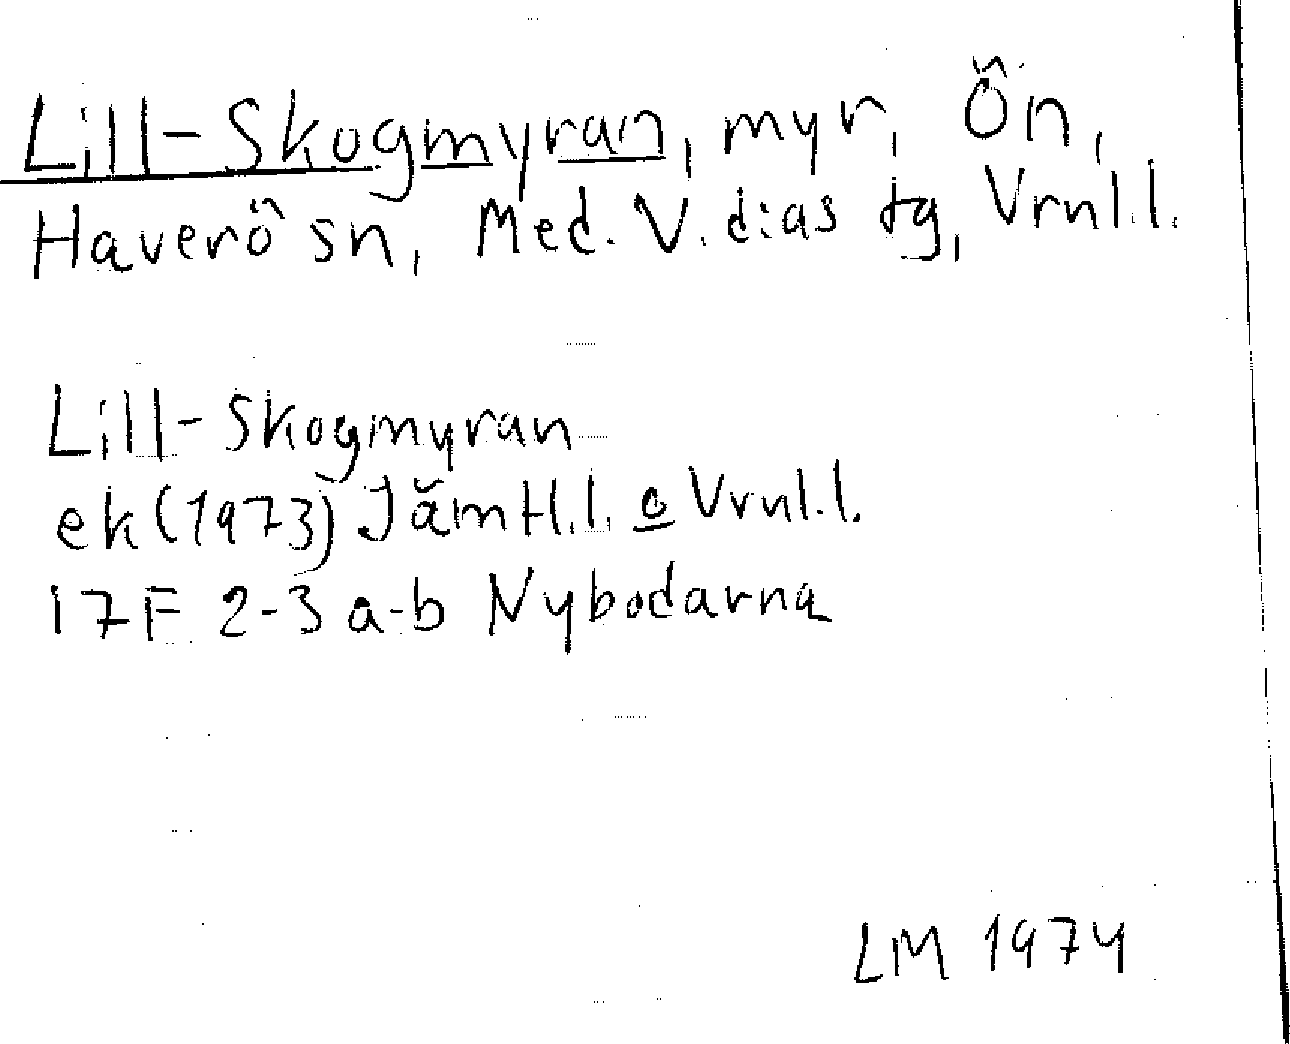 Lill-Skogmyran, myr, Ön,
Haverö sn, Med. V. d:as tg, Vrnl.l.
Lill-Skogmyran
ek (1973) JämtH.l. o Vrnl.l.
17F 2-3 a-b Nybodarna
LM 1974